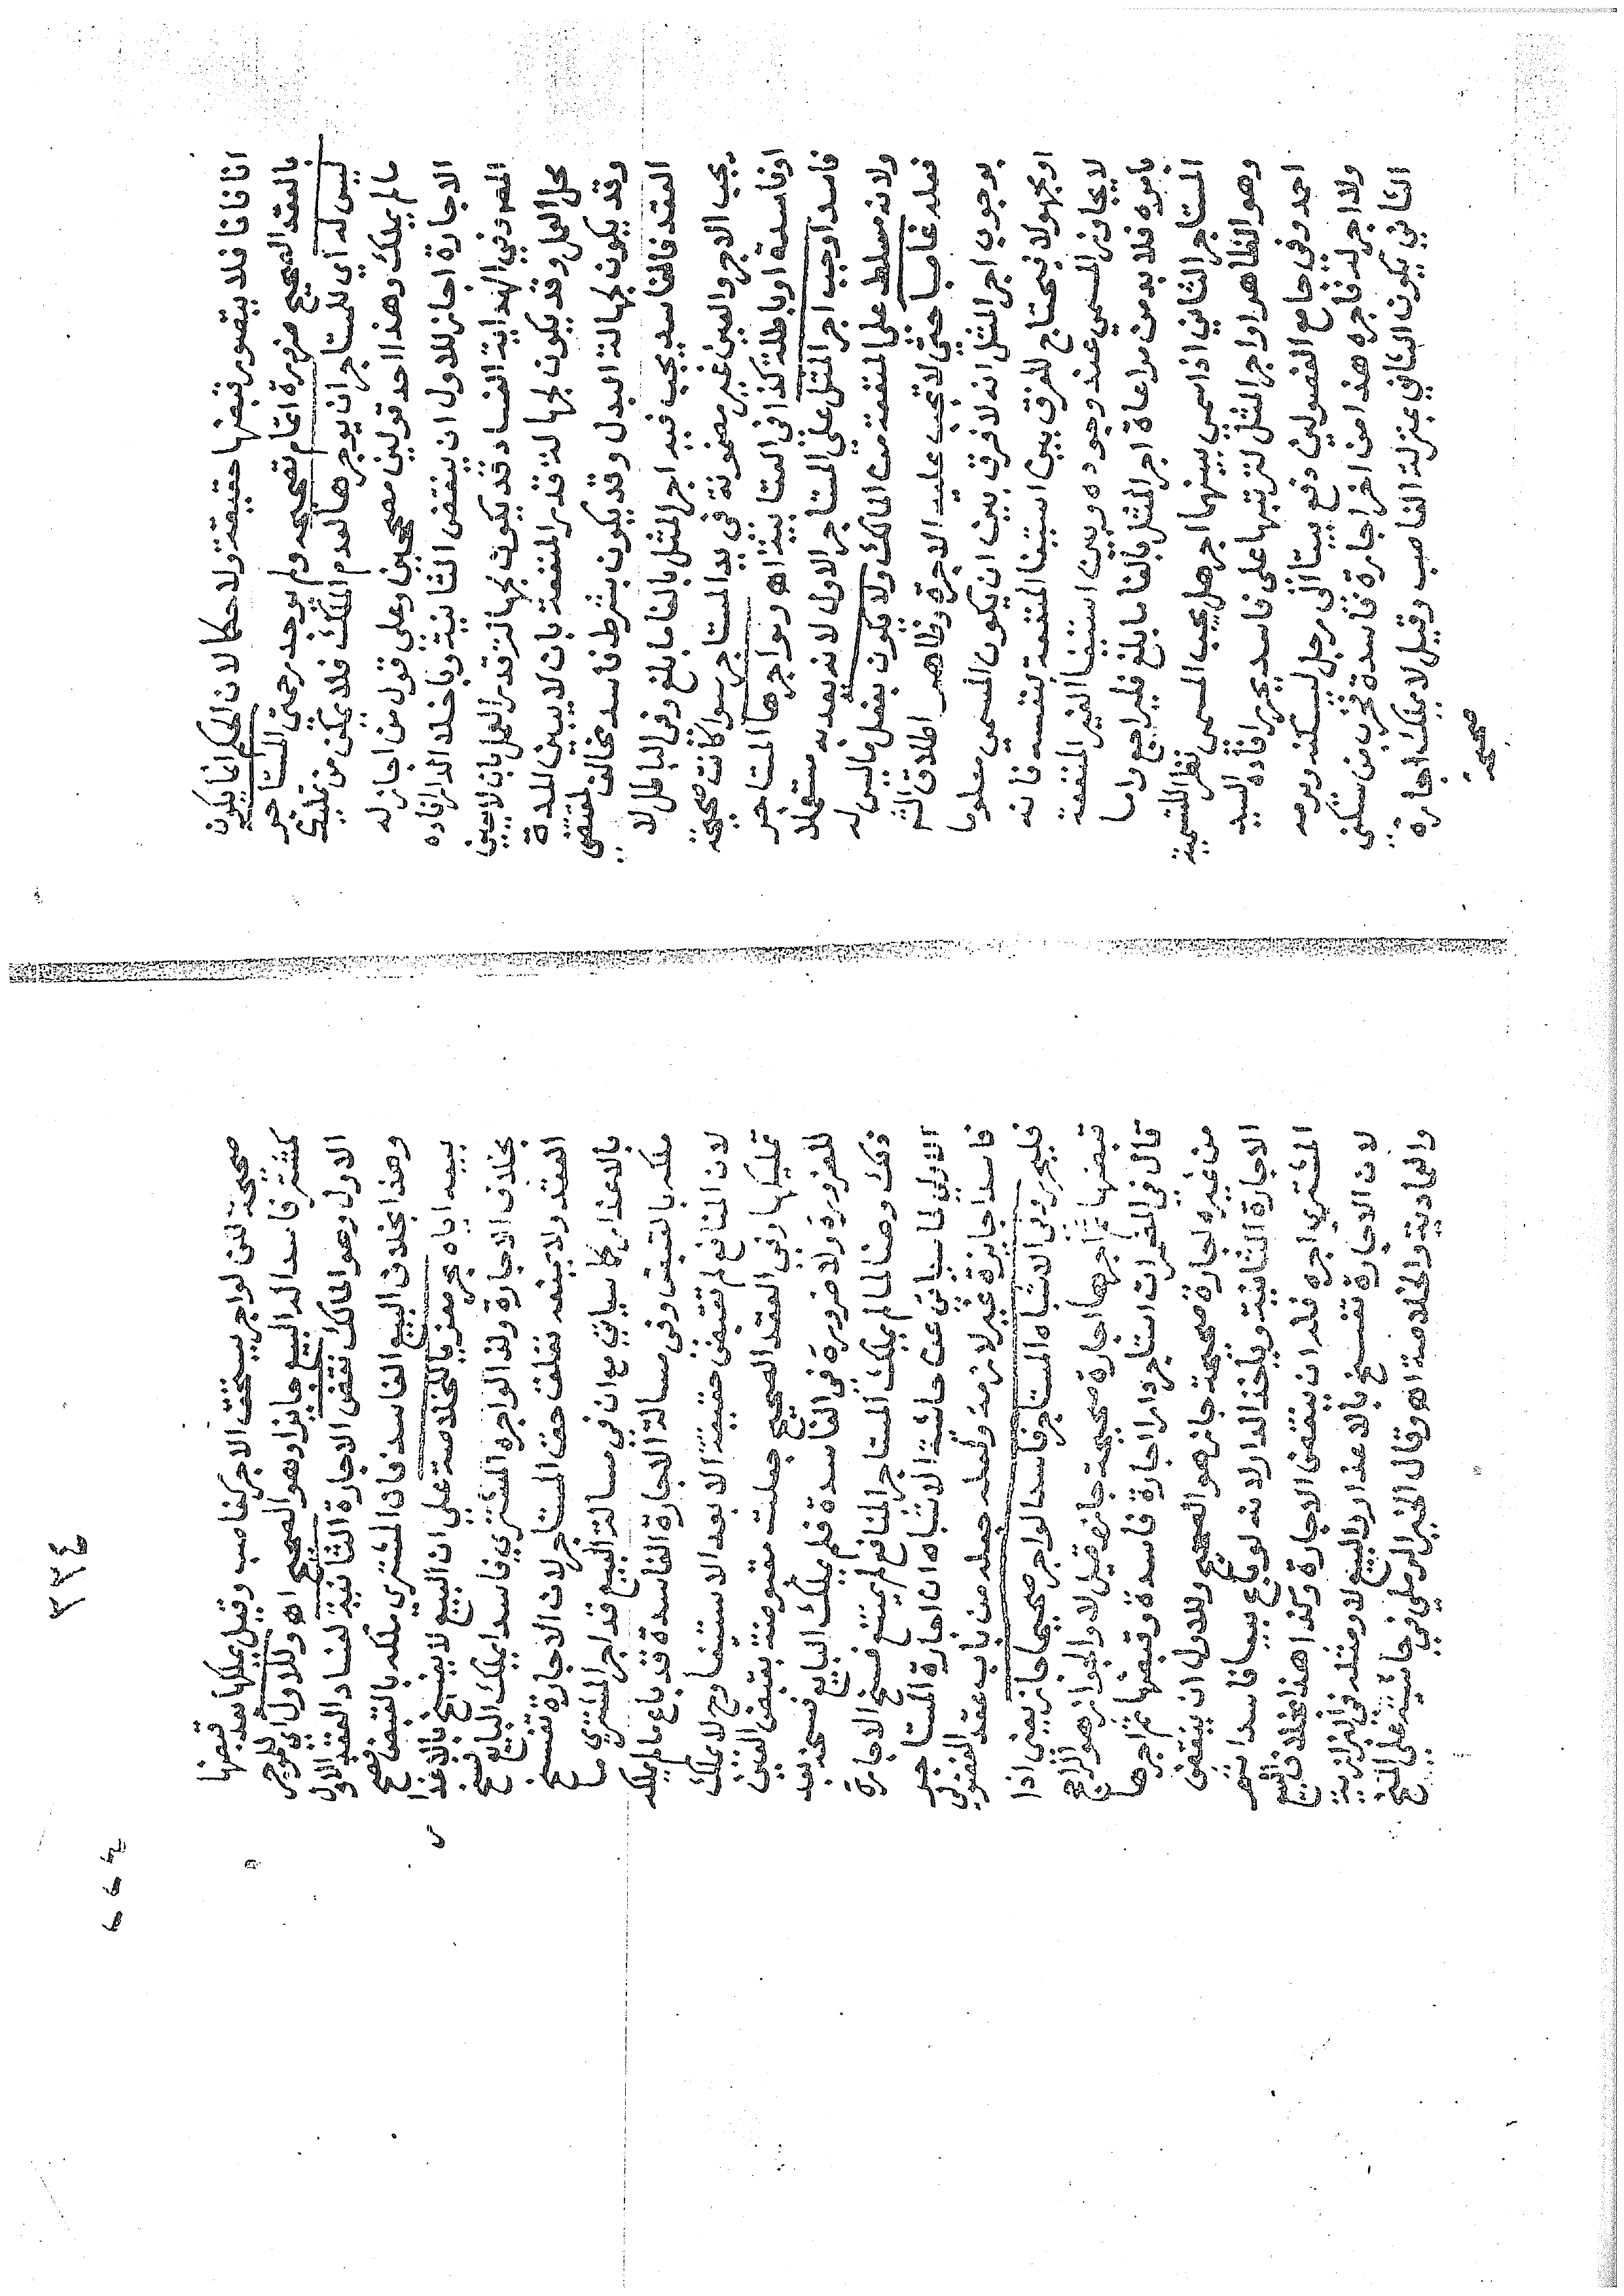 انا فانا فلا يتصور قبضها حقيقة ولا حكما لان الحكم انما يكون
بالعقد الصحيح ضرورة اتمام تصحيحه ولم يوجد رحمتي المستاجر
ليس له اي للمستاجر ان يوجرها لعدم الملك فلا يمكن من تمليك
مالم يملك وهذا احد قولين مصححين وعلى قول من اجاز له
الاجارة اجاز للاول ان ينقض الثانية وياخذ الدار افاده
المص وفي الهداية الفساد قد يكون لجهالة قدر العمل بان لا يعين
محل العمل وقد يكون لجهالة قدر المنفعة بان لا يبين المدة
وقد يكون لجهالة البدل وقد يكون بشرط فاسد مخالف لمقتضى
العقد فالفاسد يجب فيه اجر المثل بالغا ما بلغ وفي الباطل لا
يجب الاجر والعين غير مضمونة في يد المستاجر سوا كانت صحيحة
اوفاسدة او باطلة كذا في العتابية اه ولو اجرها المستاجر
فاسدا وجب اجر المثل على المستاجر الاول لانه يعد به مستعملا
ولانه مسلط على المنفعة من المالك ولا يكون بفعل ماليس له
فعله غاصبا حتى لا تجب عليه الاجرة وظاهر اطلاق الش
بوجوب اجر المثل انه لا فرق بين ان يكون المسمى معلوما
او مجهولا فيحتاج للفرق بين استيفا المنفعة بنفسه فانه
لا يجاوز المسمى عند وجوده وبين استيفا الغير المنفعة
بامره فلا بد من مراعاة اجر المثل بالغا ما بلغ فليراجع واما
المستاجر الثاني اذا سمى بينهما اجر هل يجب المسمى نظر للتسمية
وهو الظاهر او اجر المثل لترتبها على فاسد يحرر افاده السيد
احمد وفي جامع الفصولين دفع بيتا الى رجل ليسكنه ويرمه
ولا اجر له فاجره هذا من اخر اجارة فاسدة فخرب من سكنى
الثاني يكون الثاني بمنزلة الغاصب وقيل لا يملك اجارة
صحيحة
٣٣٤
صحيحة لكن لواجر يستحق الاجر كغاصب وقيل يملكها بعد قبضها
كمشتر فاسدا له البيع جايزا وهو الصحيح اه وللاول اي للموجر
الاول وهو المالك نقض الاجارة الثانية لفساد العقد الاول
وهذا بخلاف البيع الفاسد فان المشتري ملكه بالقبض فصح
بيعه اياه بحر معزيا للخلاصة على ان البيع لا يفسخ بالاعذار
بخلاف الاجارة ولذا لو اجره المشتري فاسدا يملك البايع فسخ
العقد ولا يمنعه تعلق حق المستاجر لان الاجارة تفسخ
بالاعذار كما سياتي مع ان في مسالة البيع قد اجر المشتري ما
ملكه بالقبض وفي مسالة الاجارة الفاسدة قد باع مالم يملكه
لان المنافع لم تقبض حقيقة الا بعد الاستيفا وح لا يملك
تمليكها وفي العقد الصحيح جعلت مقبوضة بقبض العين
للضرورة ولا ضرورة في الفاسدة فلم يملك البايع فسخه بعد
ذلك وهنا لما لم يملك المستاجر المنافع لم يمتنع فسخ الاجارة
الاولى لما سياتي عن حاشية الاشباه ان اجارة المستاجر
فاسدا جايزة غير لازمة ولعله جعله من باب عقد الفضولي
فليحرر وفي الاشباه المستاجر فاسدا لواجر صحيحا جاز يعني اذا
قبضها ثم اجرها اجارة صحيحة جاز وقيل لا والجواز هو الراجح
قال في المضمرات استاجر دارا اجارة فاسدة وقبضها ثم اجرها
من غيره اجارة صحيحة جاز هو الصحيح وللاول ان ينقض
الاجارة الثانية وياخذ الدار لانه لو باع بيعا فاسدا ثم
المشتري اجره فله ان ينقض الاجارة وكذا هذا بخلاف البيع
لان الاجارة تفسخ بالاعذار والبيع لا ومثله في البزازية
والعمادية والخلاصة اه وقال الخير الرملي في حاشيته على المنح